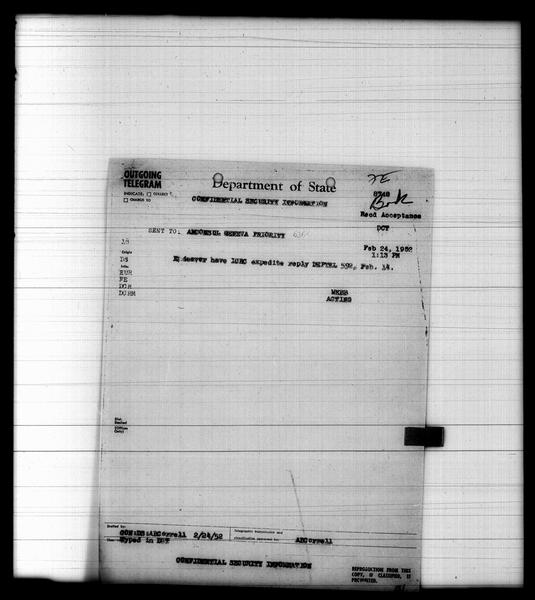 OUTGOING
TELEGRAM
INDICATE: ☐ COLLECT
☐ CHARGE TO
Department of State
CONFIDENTIAL SECURITY INFORMATION
FE
8748
Read Acceptance
DCT
SENT TO: AMCONSUL GENEVA PRIORITY
Feb 24, 1952
1:13 PM
Origin
DS
Info:
EUR
FE
DCR
Endeavor have ICRC expedite reply DEPTEL 592, Feb. 14.
WEBB
ACTING
Dist.
Desired
(Offices
Only)
Drafted by:
CON:DS:ABCorrell 2/24/52
Typed in DCT
Telegraphic transmission and
classification approved by:
ABCorrell
CONFIDENTIAL SECURITY INFORMATION
REPRODUCTION FROM THIS
COPY, IF CLASSIFIED, IS
PROHIBITED.